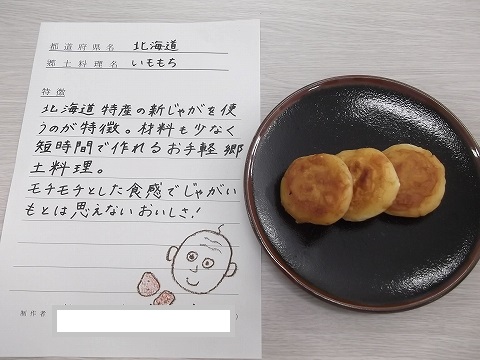 都道府県名 北海道
郷土料理名 いももち
特徴
北海道特産の新じゃがを使
うのが特徴。材料も少なく
短時間で作れるお手軽郷
土料理。
モチモチとした食感でじゃがい
もとは思えないおいしさ!
制作者 )